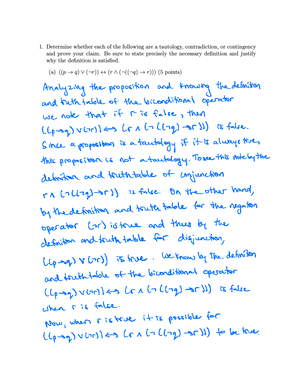 1. Determine whether each of the following are a tautology, contradiction, or contingency
and prove your claim. Be sure to state precisely the necessary definition and justify
why the definition is satisfied.
(a) ((p → q) ∨ (¬r)) ↔ (r ∧ (¬((¬q) → r))) (5 points)
Analyzing the proposition and knowing the definition
and truth table of the biconditional operator
we note that if r is false, then
((p→q) ∨ (¬r)) ↔ (r ∧ (¬((¬q)→r))) is false.
Since a proposition is a tautology if it is always true,
this proposition is not a tautology. To see this note by the
definition and truth table of conjunction
r ∧ (¬((¬q)→r)) is false. On the other hand,
by the definition and truth table for the negation
operator (¬r) is true and thus by the
definition and truth table for disjunction,
((p→q) ∨ (¬r)) is true. We know by the definition
and truth table of the biconditional operator
((p→q) ∨ (¬r)) ↔ (r ∧ (¬((¬q)→r))) is false
when r is false.
Now, when r is true it is possible for
((p→q) ∨ (¬r)) ↔ (r ∧ (¬((¬q)→r))) to be true.